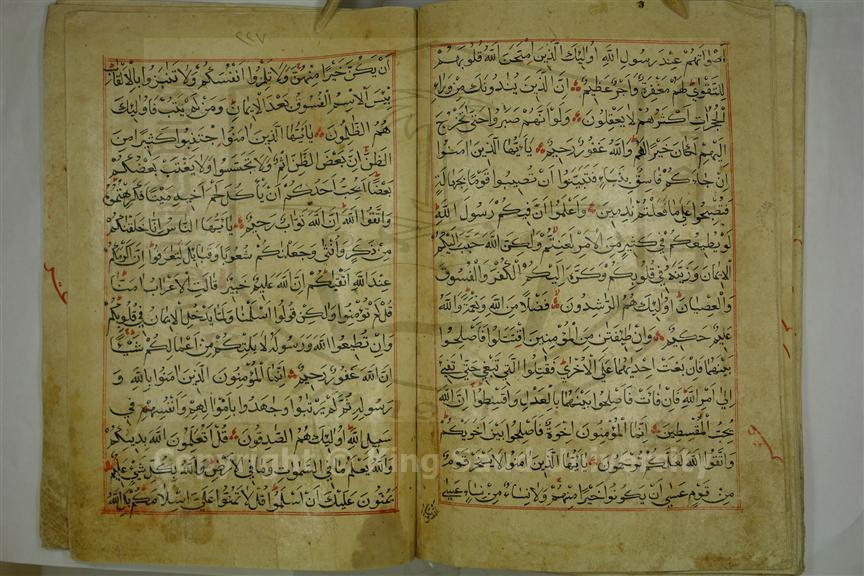 اصواتهم عند رسول الله اولئك الذين امتحن الله قلوبهم
للتقوى لهم مغفرة واجر عظيم ان الذين ينادونك من وراء
الحجرات اكثرهم لا يعقلون ولو انهم صبروا حتى تخرج
اليهم لكان خيرا لهم والله غفور رحيم يا ايها الذين امنوا
ان جاءكم فاسق بنباء فتبينوا ان تصيبوا قوما بجهالة
فتصبحوا على ما فعلتم ندمين واعلموا ان فيكم رسول الله
لو يطيعكم في كثير من الامر لعنتم ولكن الله حبب اليكم
الايمان وزينه في قلوبكم وكره اليكم الكفر والفسوق
والعصيان اولئك هم الرشدون فضلا من الله ونعمة والله
عليم حكيم وان طائفتن من المؤمنين اقتتلوا فاصلحوا
بينهما فان بغت احديهما على الاخرى فقتلوا التي تبغي حتى تفئ
الى امر الله فان فاءت فاصلحوا بينهما بالعدل واقسطوا ان الله
يحب المقسطين انما المؤمنون اخوة فاصلحوا بين اخويكم
واتقوا الله لعلكم ترحمون يا ايها الذين امنوا لا يسخر قوم
من قوم عسى ان يكونوا خيرا منهم ولا نساء من نساء عسى
٢٢٧
ان يكن خيرا منهن ولا تلمزوا انفسكم ولا تنابزوا بالالقاب
بئس الاسم الفسوق بعد الايمان ومن لم يتب فاولئك
هم الظلمون يا ايها الذين امنوا اجتنبوا كثيرا من
الظن ان بعض الظن اثم ولا تجسسوا ولا يغتب بعضكم
بعضا ايحب احدكم ان ياكل لحم اخيه ميتا فكرهتموه
واتقوا الله ان الله تواب رحيم يا ايها الناس انا خلقنكم
من ذكر وانثى وجعلنكم شعوبا وقبائل لتعارفوا ان اكرمكم
عند الله اتقيكم ان الله عليم خبير قالت الاعراب امنا
قل لم تؤمنوا ولكن قولوا اسلمنا ولما يدخل الايمان في قلوبكم
وان تطيعوا الله ورسوله لا يلتكم من اعمالكم شيئا
ان الله غفور رحيم انما المؤمنون الذين امنوا بالله و
رسوله ثم لم يرتابوا وجهدوا باموالهم وانفسهم في
سبيل الله اولئك هم الصدقون قل اتعلمون الله بدينكم
والله يعلم ما في السموت وما في الارض والله بكل شيء عليم
يمنون عليك ان اسلموا قل لا تمنوا علي اسلامكم بل الله
Copyright © King Saud University